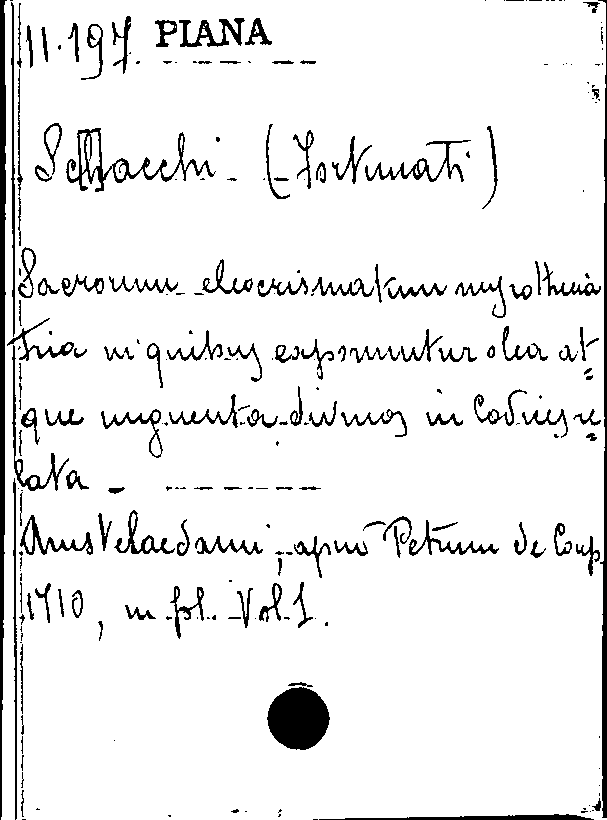 11.197 PIANA
Schacchi (Fortunati)
Sacrorum eleocrismatum myrothecia
tria in quibus exponuntur olea at=
que unguenta divinos in Codices re=
lata -
Amstelaedami, apud Petrum de Coup.
1710, in fol. Vol. 1.